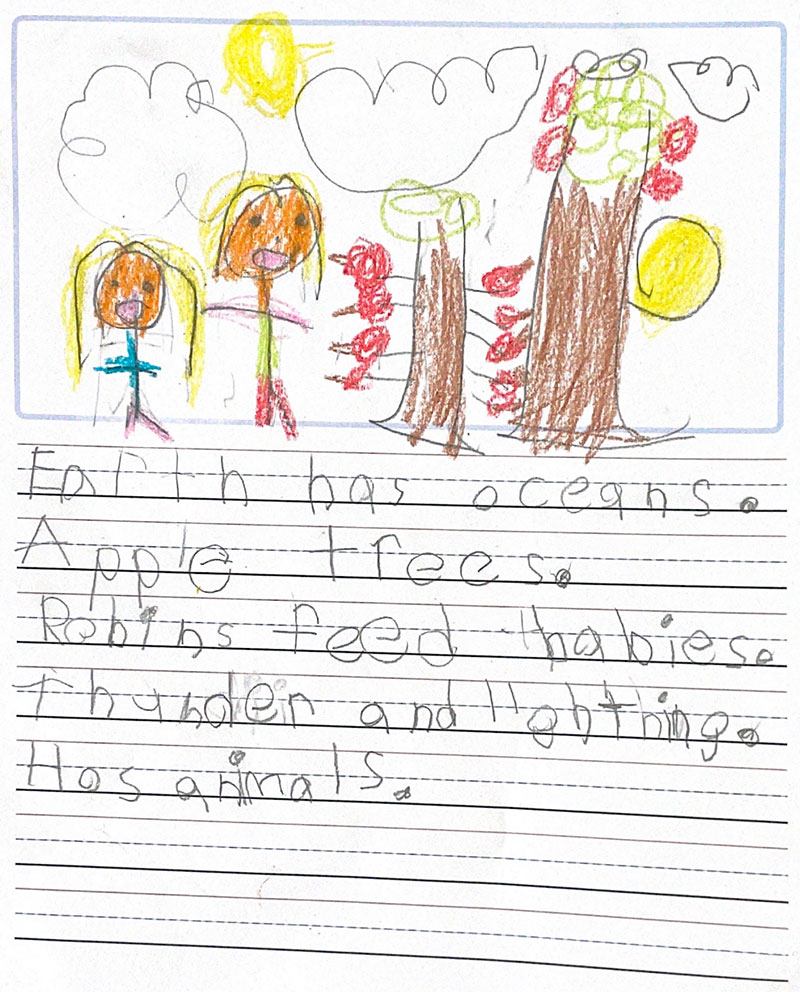 Earth has oceans.
Apple trees.
Robins feed babies.
Thunder and lighthing.
Has animals.